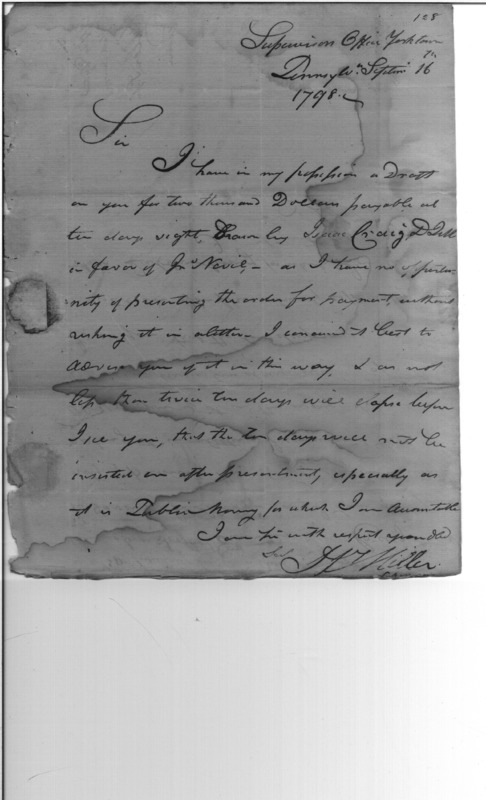 128
Supervisors Office Yorktown
Pennsylva. Septem 16th
1798.
Sir
I have in my possession a Draft
on you for two thousand Dollars payable at
ten days sight, Drawn by Isaac Craig D.
in favor of Jno Nevil, - as I have no opportu-
nity of presenting the order for payment, without
risking it in a letter - I conceived it best to
advise you of it in this way, & as not
less than twice ten days will elapse before
I see you, that the ten days will not be
insisted on after presentment, especially as
it is Publick Money for which I am Accountable
I am Sir with respect your Obd
Miller